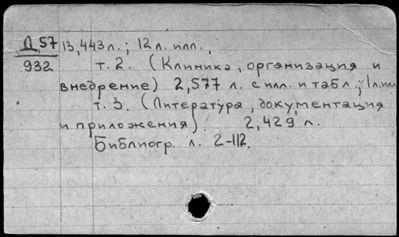 Д 57 13,443 л.; 12 л. илл.,
932 т. 2. (Клиника, организация и
внедрение) 2,577 л. с илл. и табл.; 1 л. илл
т. 3. (Литература, документация
и приложения). 2,429 л.
Библиогр. л. 2-112.